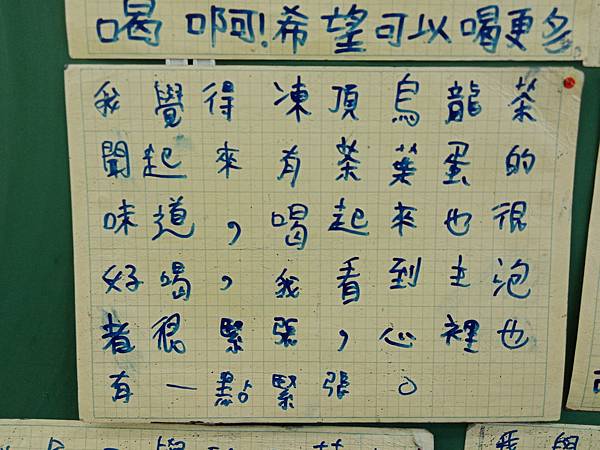 喝啊!希望可以喝更多
我覺得凍頂烏龍茶
聞起來有茶葉蛋的
味道，喝起來也很
好喝，我看到主泡
者很緊張，心裡也
有一點緊張。